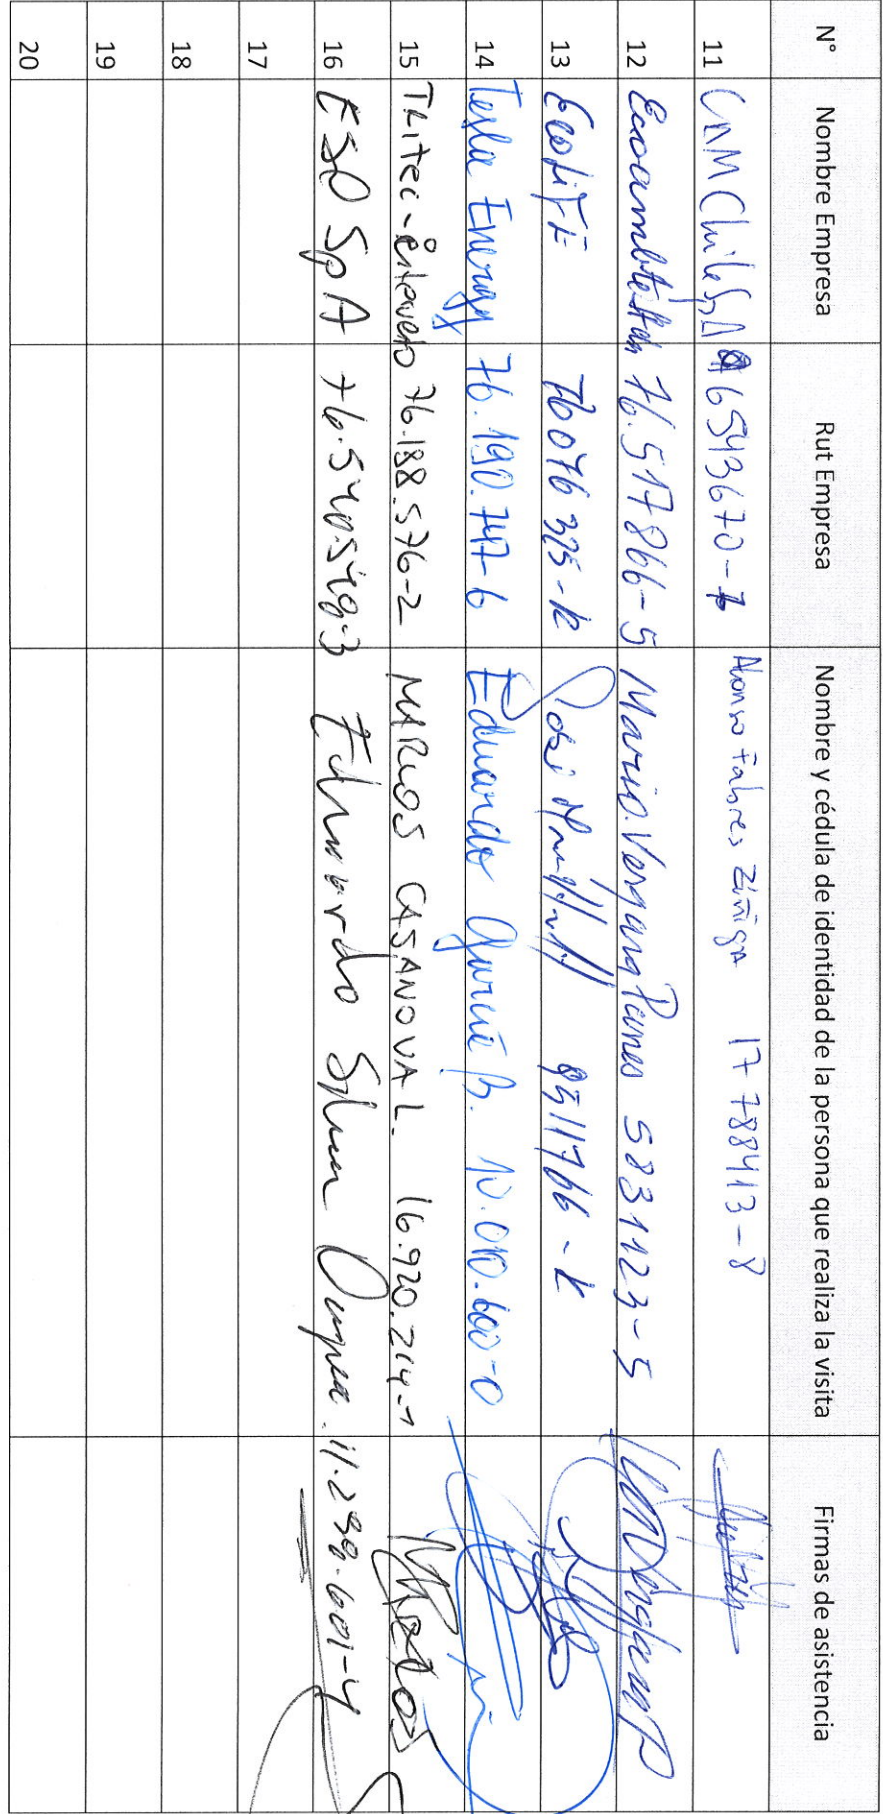 N° Nombre Empresa Rut Empresa Nombre y cédula de identidad de la persona que realiza la visita Firmas de asistencia
11 CAM Chile SpA 96543670-7 Alonso Fabres Zúñiga 17788413-8
12 76.517866-5 Mario Vergara 5831123-5
13 Ecolife 76076325-k José 9311766-k
14 Tesla Energy 76.190.747-6 Eduardo García B. 10.010.600-0
15 Tritec-Intervento 76.188.576-2 MARCOS CASANOVA L. 16.920.214-7
16 ESO SpA 76.540.548-3 Eduardo 11.298.601-4
17
18
19
20